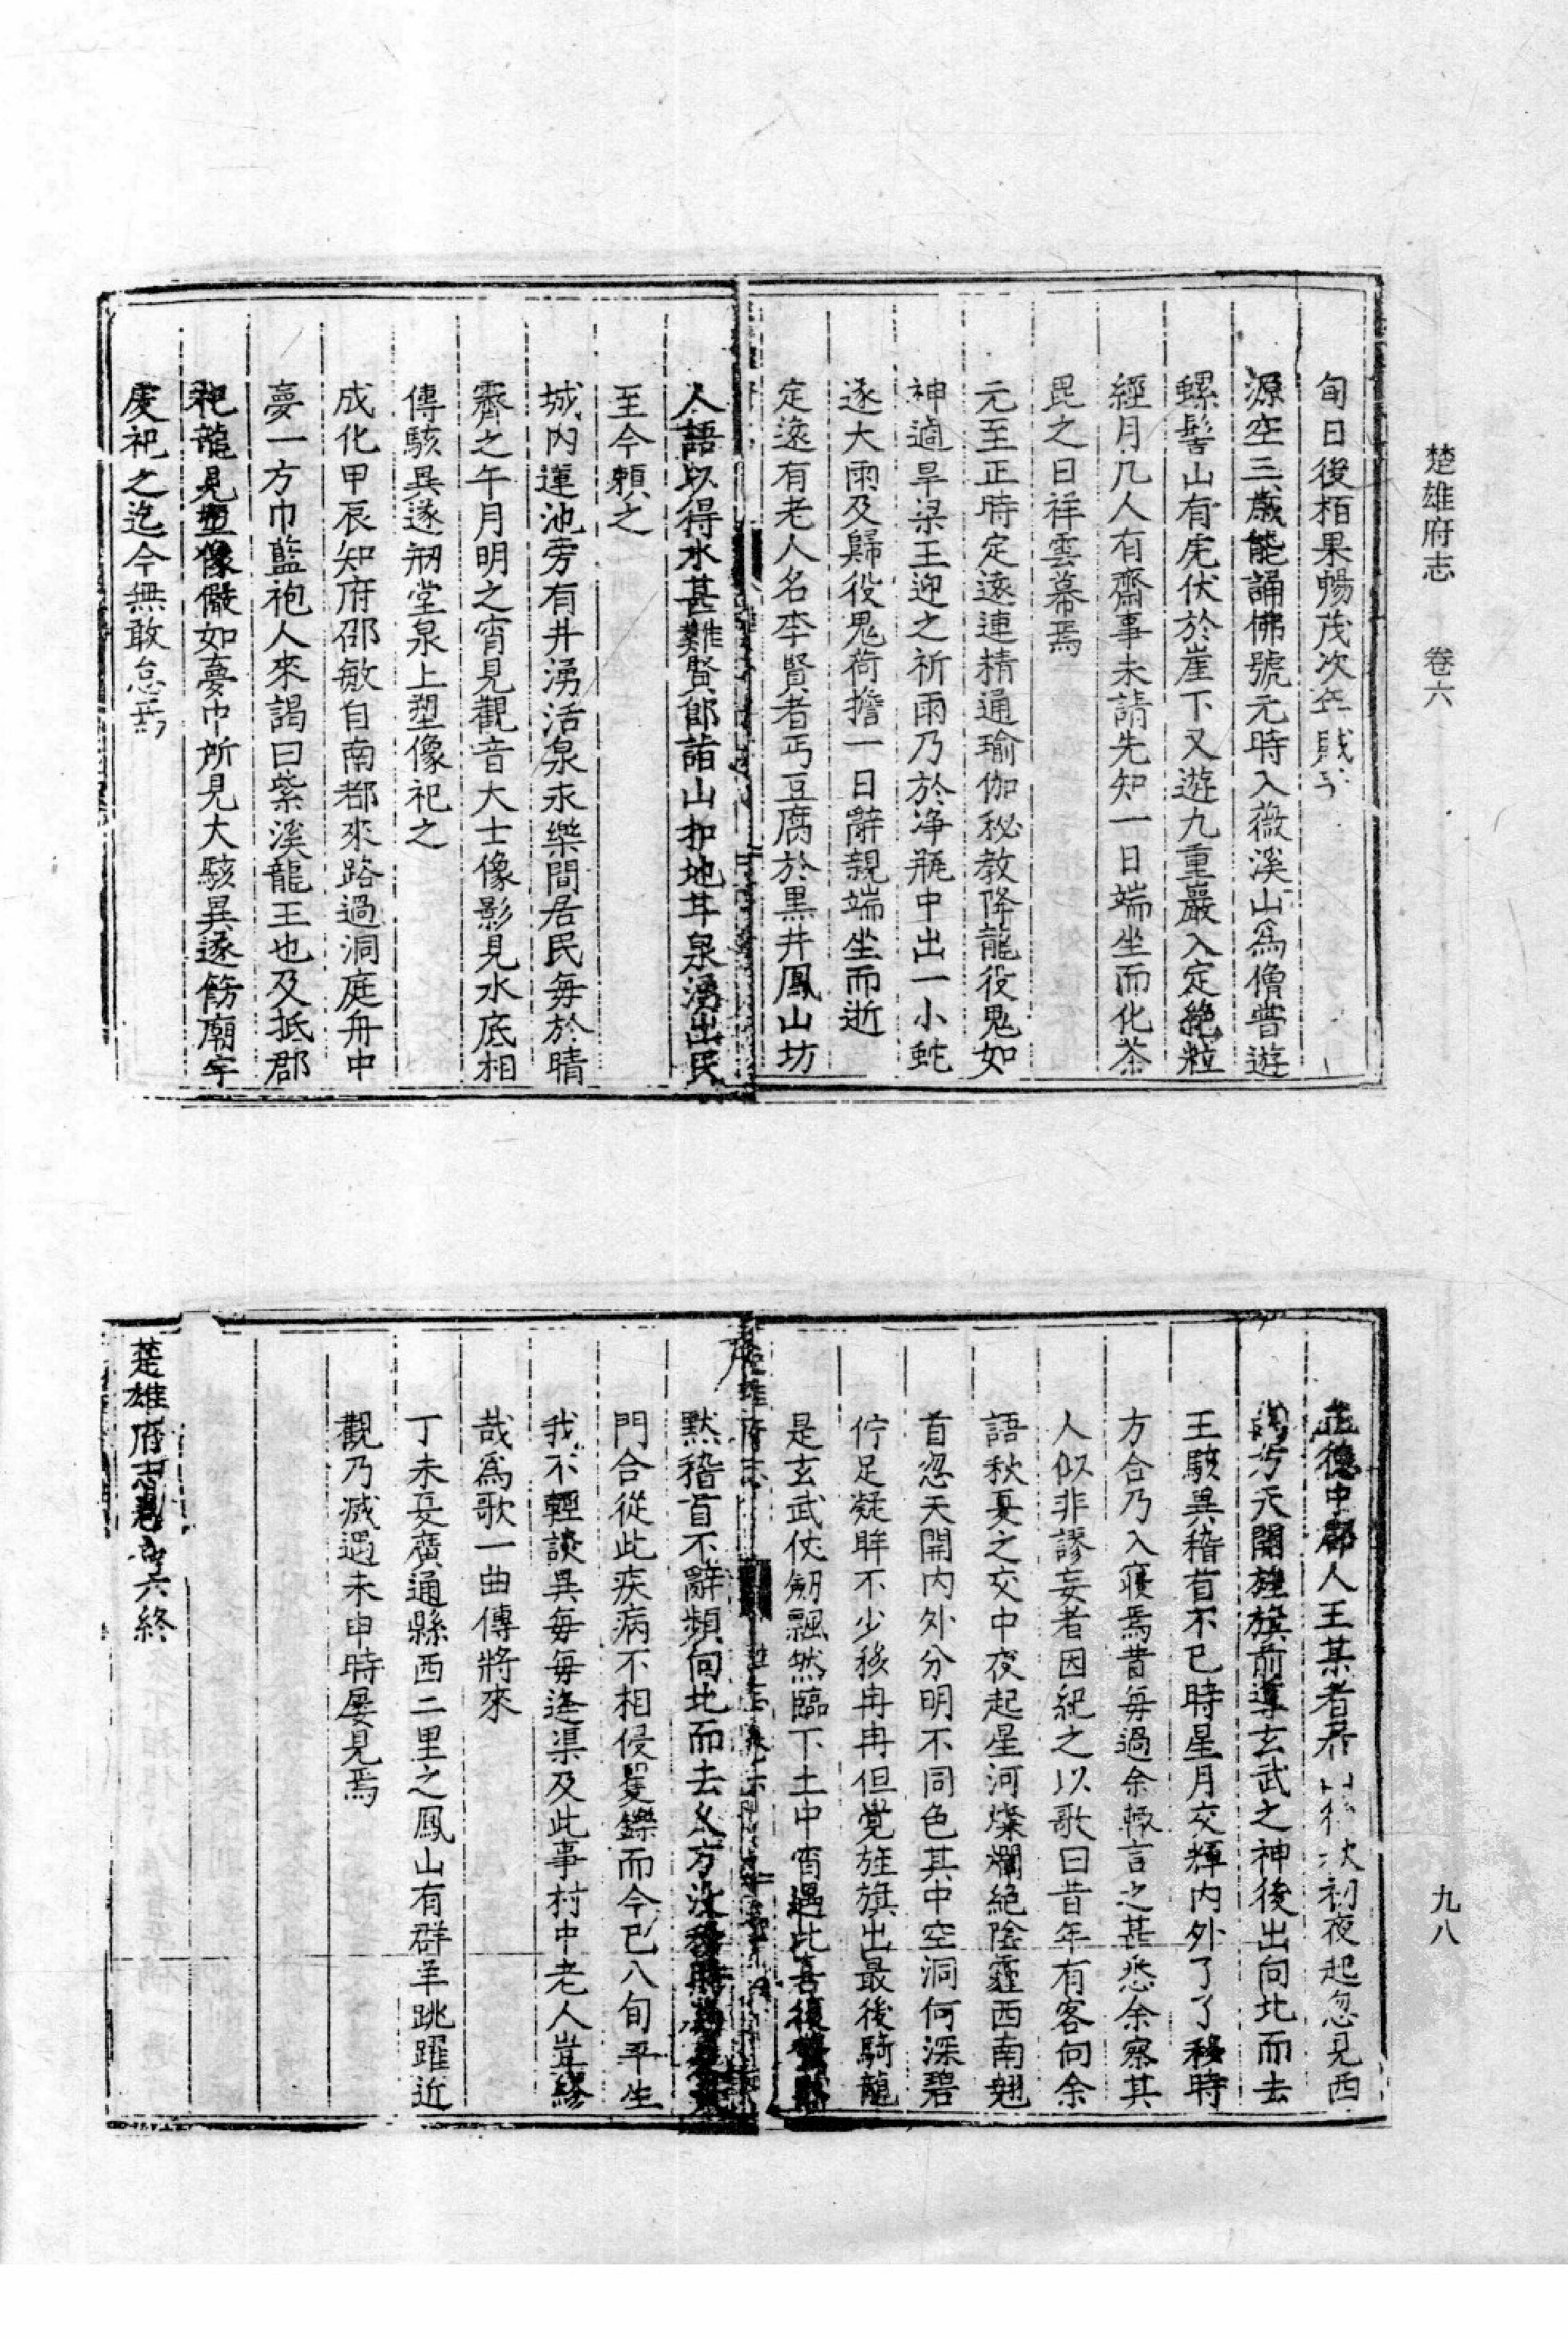 楚雄府志　卷六
九八
旬日後栢果暢茂次年賊
源空三歲能誦佛號元時入薇溪山為僧甞遊
螺髻山有虎伏於崖下又遊九重巖入定絶粒
經月凡人有齋事未請先知一日端坐而化荼
毘之日祥雲幕焉
元至正時定遠連精通瑜伽秘教降龍役鬼如
神適旱梁王迎之祈雨乃於净瓶中出一小蛇
遂大雨及歸役鬼荷擔一日辭親端坐而逝
定遠有老人名李賢者丐豆腐於黒井鳳山坊
人語以得水甚難賢郎詣山扣地井泉湧出民
至今頼之
城内蓮池旁有井湧活泉永樂間居民每於晴
霽之午月明之宵見觀音大士像影見水底相
傳駭異遂剏堂泉上塑像祀之
成化甲辰知府邵敏自南都來路過洞庭舟中
夢一方巾藍袍人來謁曰紫溪龍王也及抵郡
祀龍見塑像儼如夢中所見大駭異遂餙廟宇
虔祀之迄今無敢怠焉
正德中郡人王某者居山後秋初夜起忽見西
南方天開旌旗前導玄武之神後出向北而去
王駭異稽首不已時星月交輝内外了了移時
方合乃入寢焉昔每過余輙言之甚悉余察其
人似非謬妄者因紀之以歌曰昔年有客向余
語秋夏之交中夜起星河燦爛絶陰霾西南翹
首忽天開内外分明不同色其中空洞何深碧
佇足凝眸不少移冉冉但覺旌旗出最後騎龍
是玄武仗劒飄然臨下土中宵遇此喜復
黙稽首不辭頻向北而去乂方没移時
門合從此疾病不相侵矍鑠而今已八旬平生
我不輕談異每每逢渠及此事村中老人豈繆
哉為歌一曲傳將來
丁未夏廣通縣西二里之鳳山有群羊跳躍近
觀乃滅過未申時屡見焉
楚雄府志卷之六終